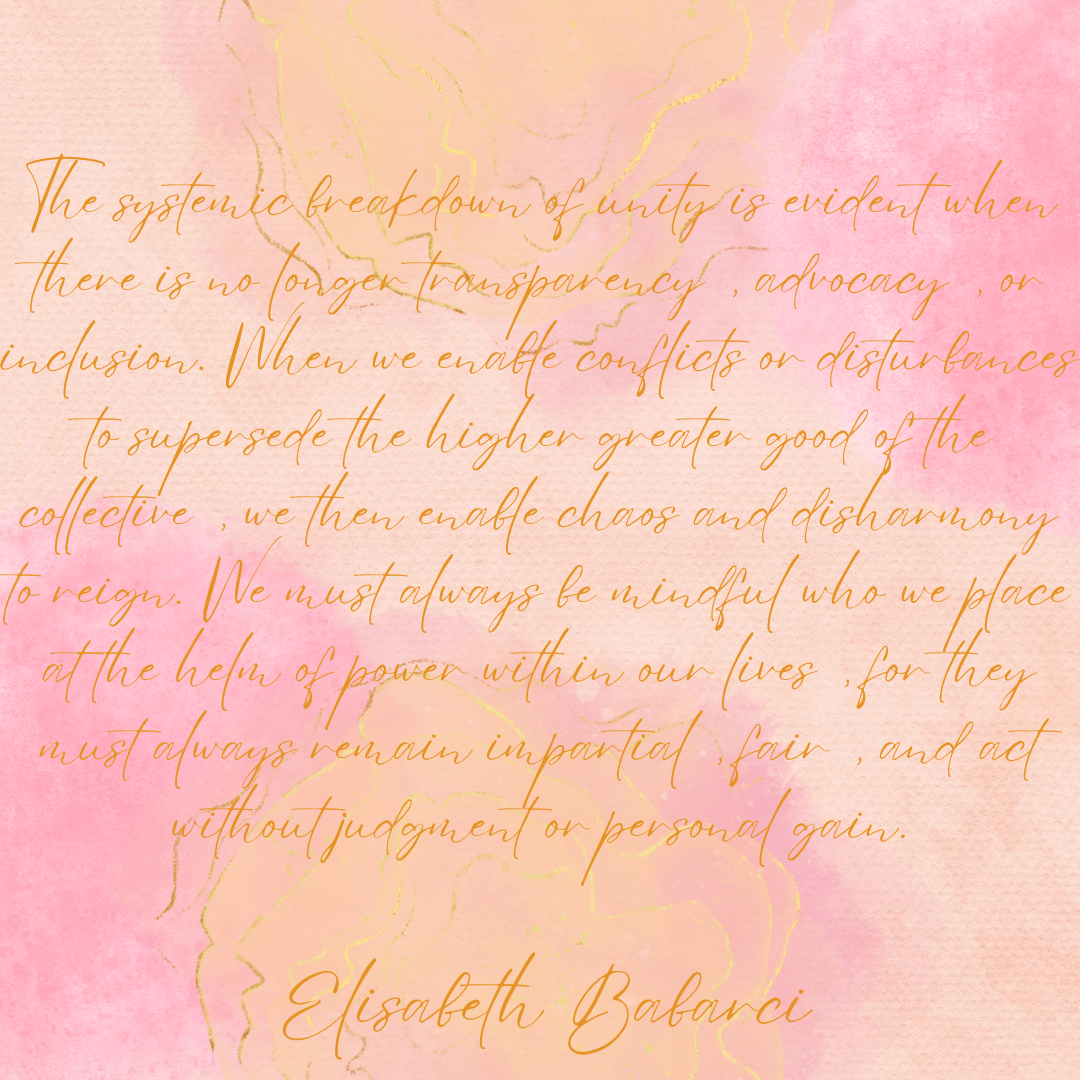 The systemic breakdown of unity is evident when
there is no longer transparency , advocacy , or
inclusion. When we enable conflicts or disturbances
to supersede the higher greater good of the
collective , we then enable chaos and disharmony
to reign. We must always be mindful who we place
at the helm of power within our lives , for they
must always remain impartial , fair , and act
without judgment or personal gain.
Elisabeth Babarci